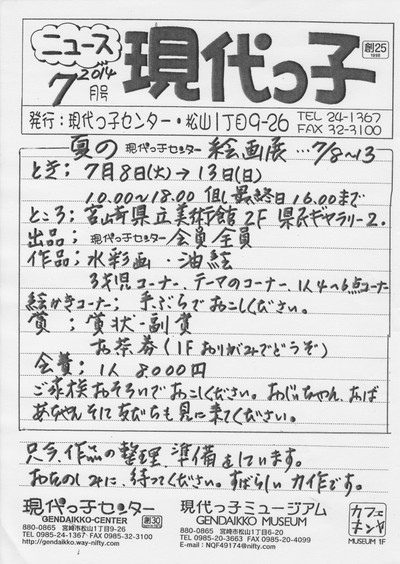 ニュース
2014
7月号
現代っ子
創25
1990
発行：現代っ子センター・松山1丁目9-26
TEL 24-1367
FAX 32-3100
夏の 現代っ子センター 絵画展…7/8~13
とき；7月8日(火)→13日(日)
10.00~18.00 但し最終日16.00まで
ところ；宮崎県立美術館2F 県民ギャラリー2.
出品；現代っ子センター会員全員
作品；水彩画・油絵
3才児コーナー、テーマのコーナー、1人4~6点コーナー
絵かきコーナー；手ぶらでおこしください。
賞；賞状・副賞
お茶券(1Fおりがみでどうぞ)
会費；1人 8000円
ご家族おそろいでおこしください。おじいちゃん、おば
あちゃん そして 友だちも見に来てください。
只今、作品の整理、準備をしています。
おたのしみに、待ってください。すばらしい力作です。
現代っ子センター
GENDAIKKO-CENTER
創30
880-0865 宮崎市松山1丁目9-26
TEL 0985-24-1367 FAX 0985-32-3100
http://gendaikko.way-nifty.com/
現代っ子ミュージアム
GENDAIKKO MUSEUM
880-0865 宮崎市松山1丁目6-20
TEL 0985-20-3663 FAX 0985-20-4099
E-mail：NQF49174@nifty.com
カフェ
MUSEUM 1F